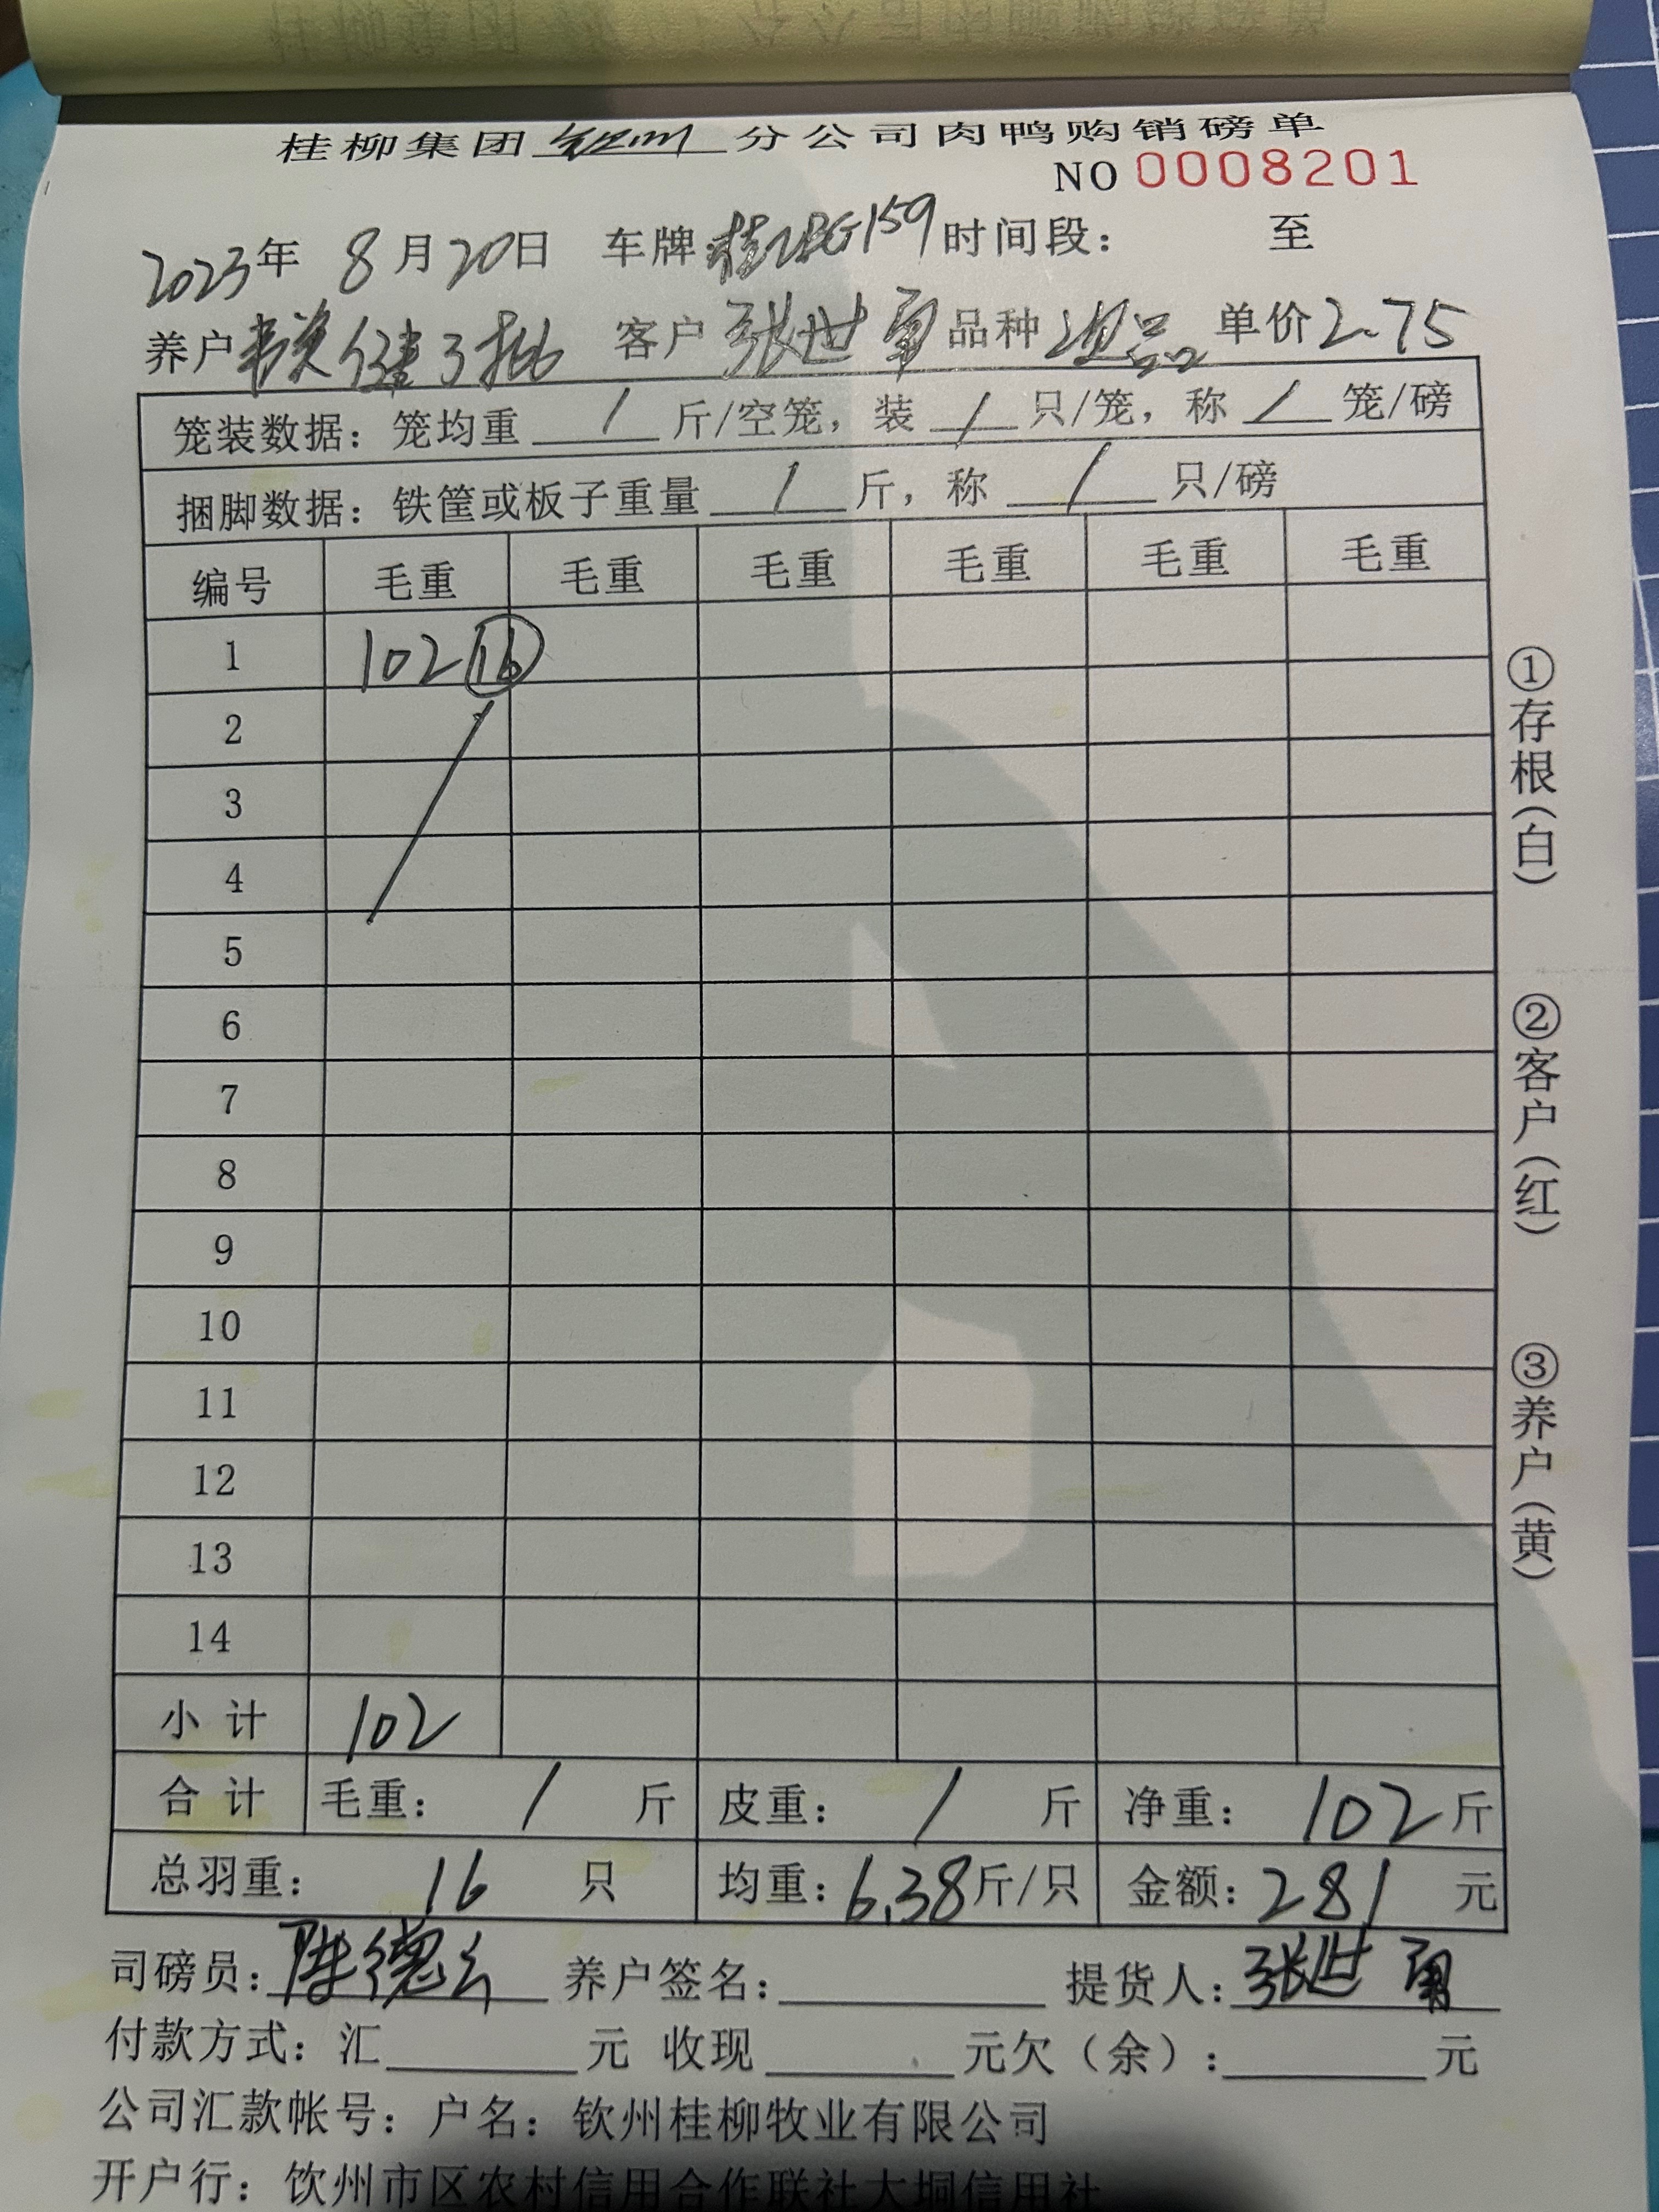 桂柳集团 钦州 分公司肉鸭购销磅单
NO 0008201
2023年 8月20日 车牌 159 时间段： 至
养户 健3批 客户 张世勇 品种 次品 单价 2.75
笼装数据：笼均重 / 斤/空笼，装 / 只/笼，称 / 笼/磅
捆脚数据：铁筐或板子重量 / 斤，称 / 只/磅
编号 毛重 毛重 毛重 毛重 毛重 毛重
1 102 16
2
3
4
5
6
7
8
9
10
11
12
13
14
小计 102
合计 毛重： / 斤 皮重： / 斤 净重： 102 斤
总羽重： 16 只 均重：6.38斤/只 金额：281 元
司磅员：陈德云 养户签名： 提货人：张世勇
付款方式：汇 元 收现 元欠（余）： 元
公司汇款帐号：户名：钦州桂柳牧业有限公司
开户行：钦州市区农村信用合作联社大垌信用社
①存根（白）
②客户（红）
③养户（黄）